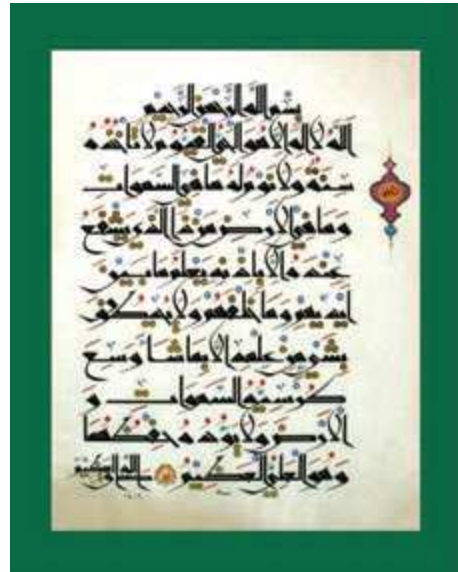 بسم الله الرحمن الرحيم
الله لا اله الا هو الحي القيوم لا تاخذه
سنة ولا نوم له ما في السموات
وما في الارض من ذا الذي يشفع
عنده الا باذنه يعلم ما بين
ايديهم وما خلفهم ولا يحيطون
بشيء من علمه الا بما شا وسع
كرسيه السموات و
الارض ولا يوده حفظهما
وهو العلي العظيم